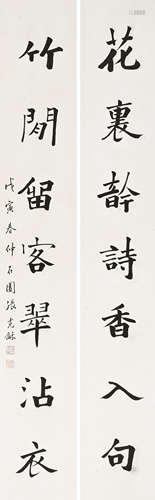 花裏斡詩香入句
竹閒留客翠沾衣
戊寅春仲石園張克龢